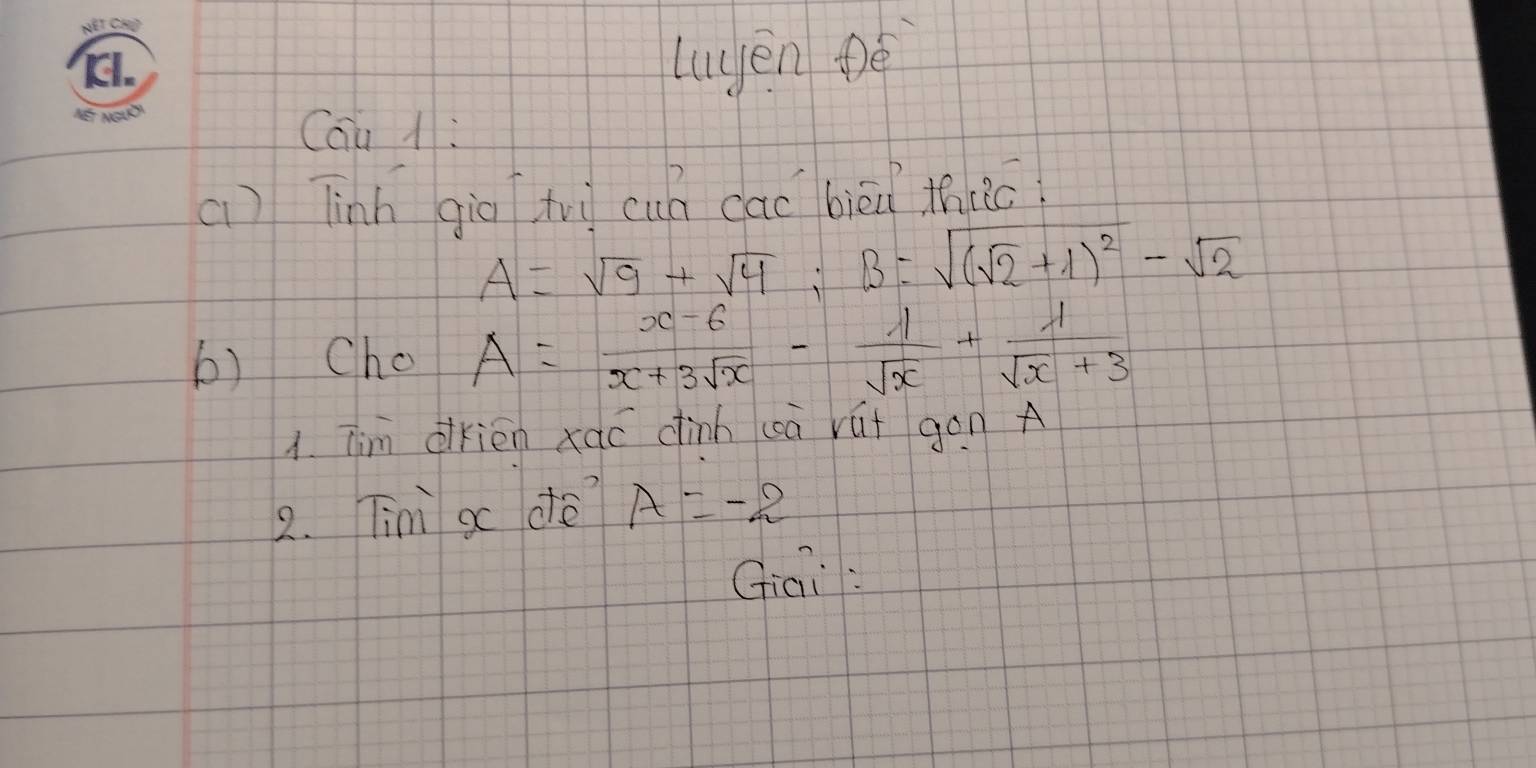 NÉT CHỮ
KH.
NẾT NGƯỜI
Luyện Đề
Câu 1:
a) Tính giá trị của các biểu thức:
A = √9 + √4 ; B = √(√2 + 1)² - √2
b) Cho A = x-6/x+3√x - 1/√x + 1/√x+3
1. Tìm đkiện xác định và rút gọn A
2. Tìm x để A = -2
Giải: